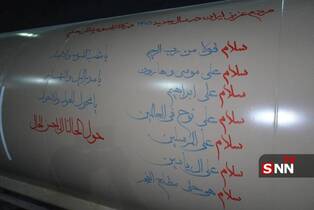 مردم عزیز ایران
سلام قولا من رب الرحیم
سلام علی موسی و هارون
سلام علی ابراهیم
سلام علی نوح فی العالمین
سلام علی المرسلین
سلام علی آل یاسین
سلام هی حتی مطلع الفجر
یا مقلب القلوب و الابصار
یا مدبر اللیل و النهار
یا محول الحول و الاحوال
حول حالنا الی احسن الحال
SNN